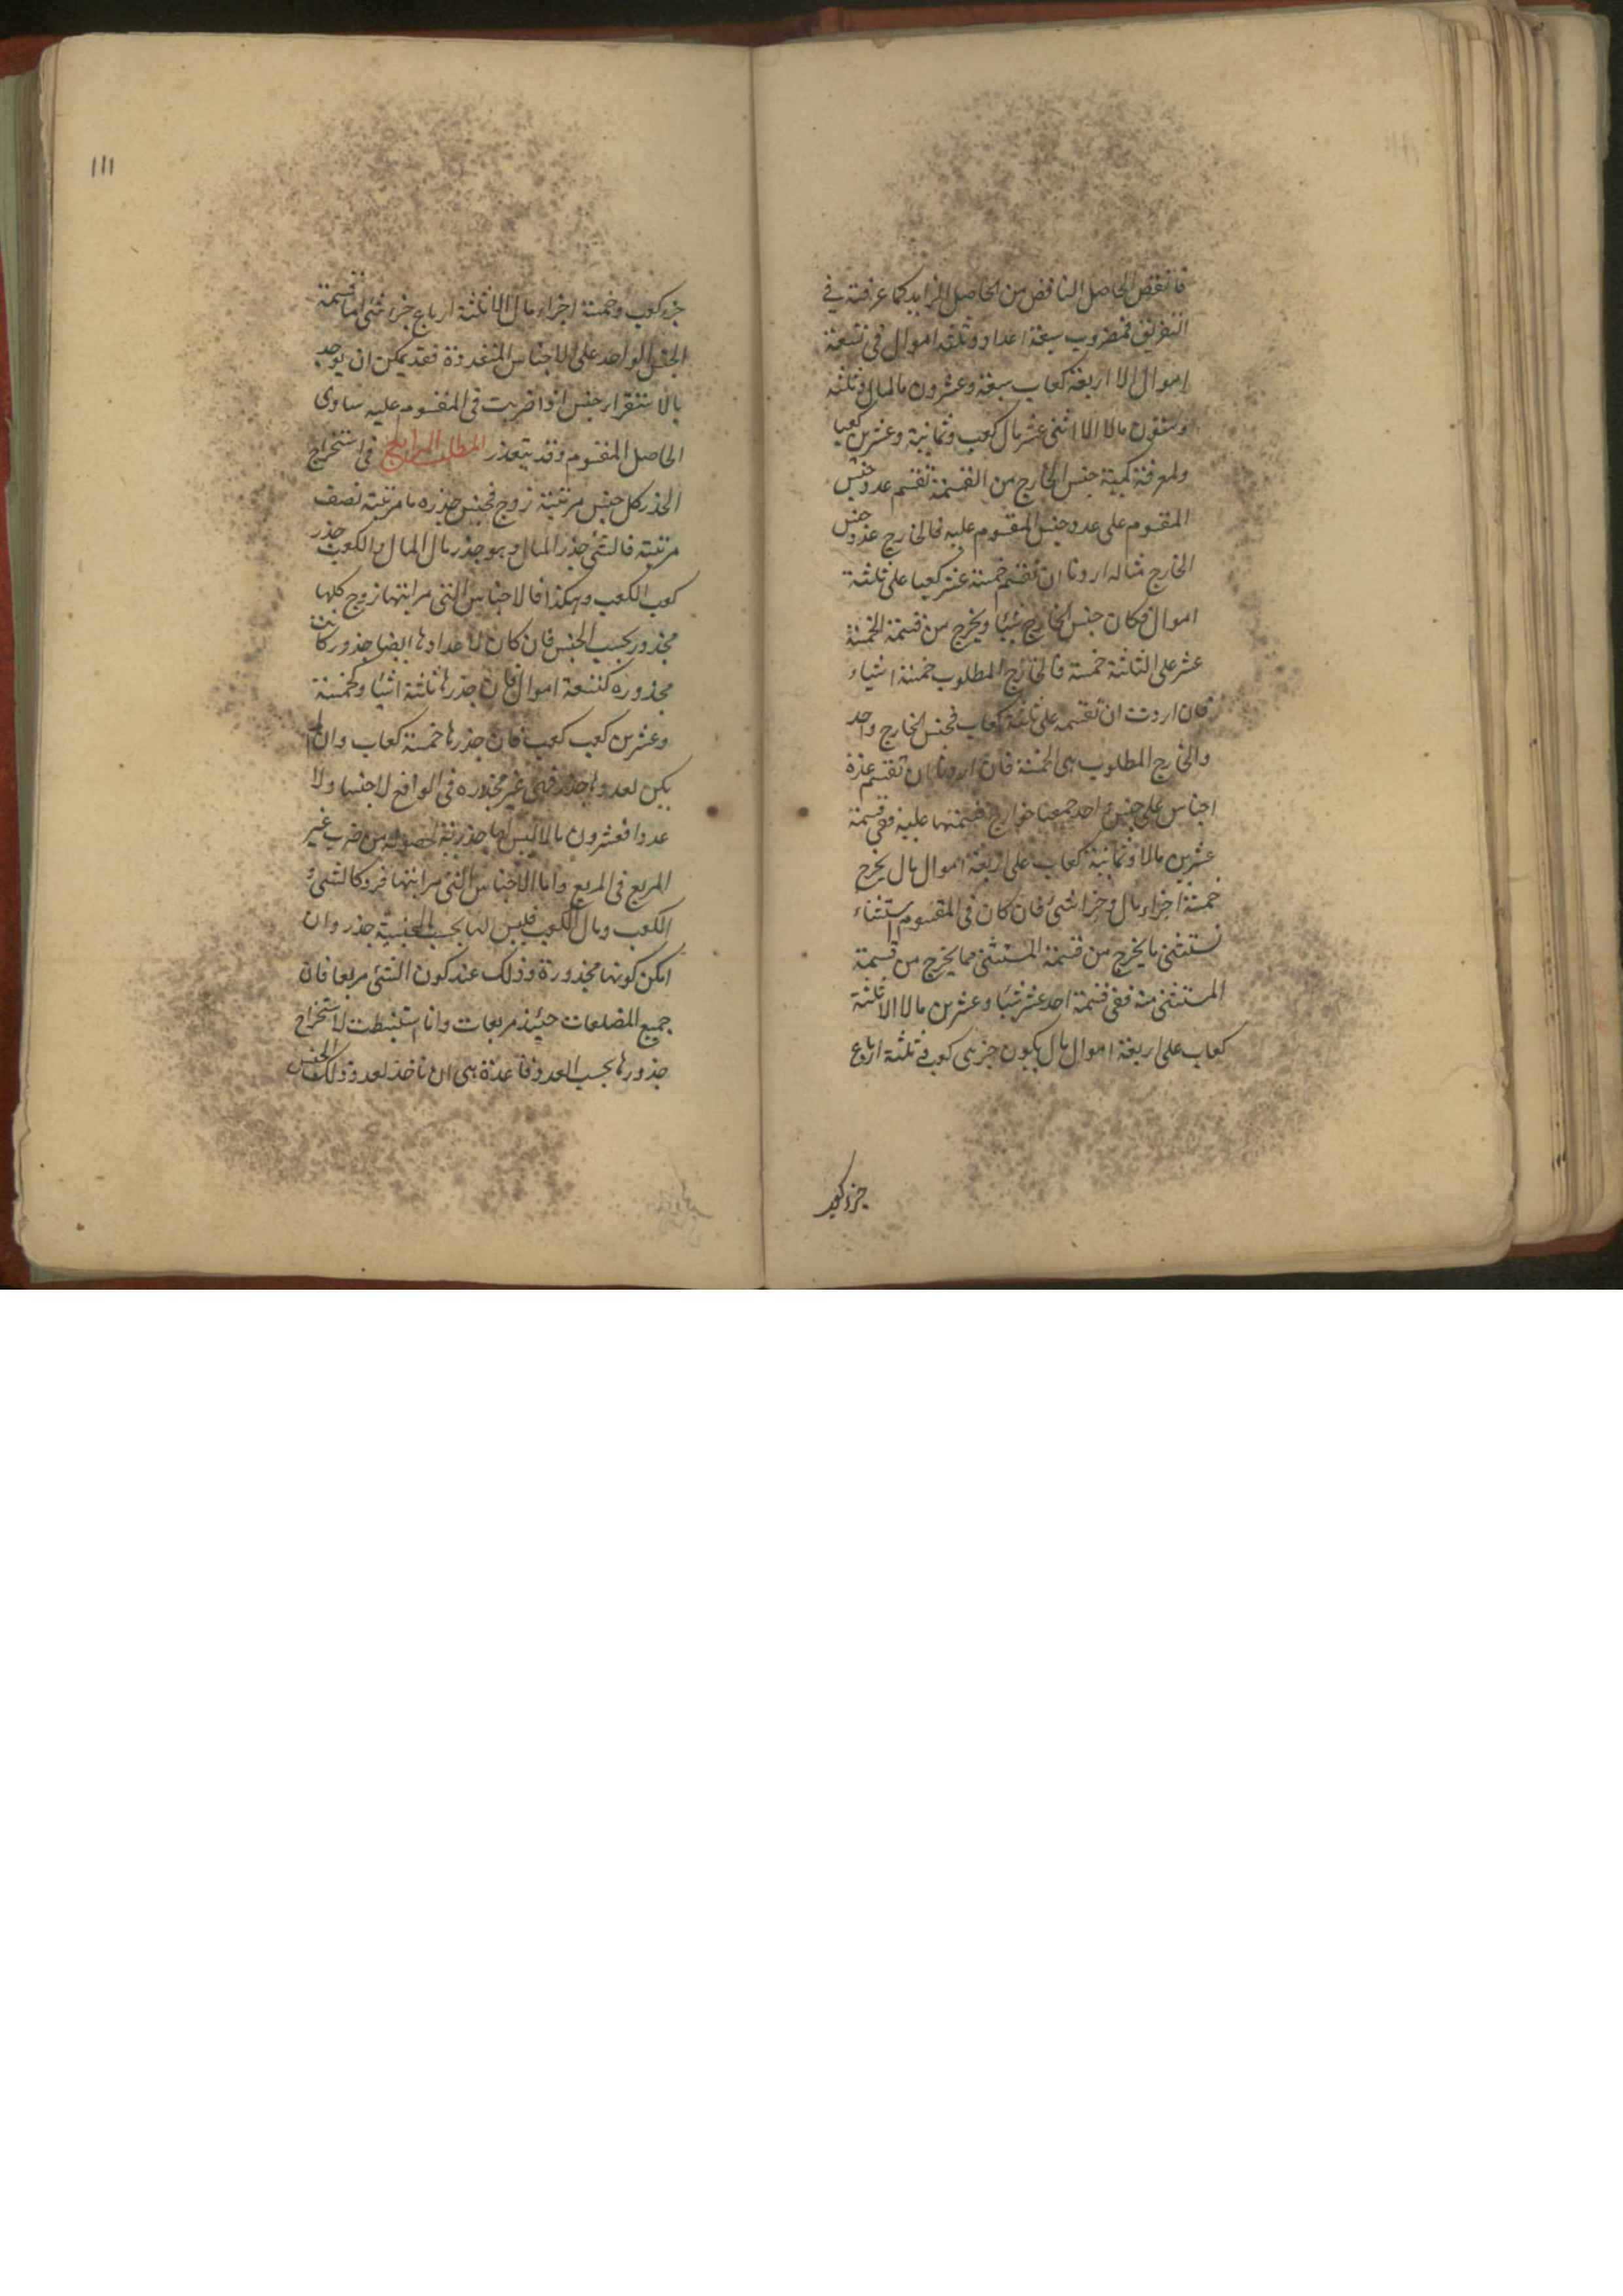 فانقص الحاصل الناقص من الحاصل الزايد كما عرفته في
التفريق فمضروب سبعة اعداد وثلثة اموال في تسعة
اموال الا اربعة كعاب سبعة وعشرون مال مال وثلثة
وستون مالا الا اثنى عشر مال كعب وثمانية وعشرين كعبا
ولمعرفة كمية جنس الخارج من القسمة تقسم عدد جنس
المقسوم على عدد جنس المقسوم عليه فالخارج عدد جنس
الخارج مثاله اردنا ان نقسم خمسة عشر كعبا على ثلثة
اموال فكان جنس الخارج شيئا ويخرج من قسمة الخمسة
عشر على الثلثة خمسة فالخارج المطلوب خمسة اشياء
فان اردت ان تقسمه على ثلثة كعاب فجنس الخارج واحد
والخارج المطلوب هى الخمسة فان اردنا ان نقسم عدة
اجناس على جنس واحد جمعنا خوارج قسمتها عليه ففي قسمة
عشرين مالا وثمانية كعاب على اربعة اموال مال يخرج
خمسة اجزاء مال وجزا شئ فان كان في المقسوم استثناء
نستثنى ما يخرج من قسمة المستثنى مما يخرج من قسمة
المستثنى منه ففى قسمة احد عشر شيئا وعشرين مالا الا ثلثة
كعاب على اربعة اموال مال يكون جزءى كعب وثلثة ارباع
جزء كعب
١١١
جزء كعب وخمسة اجزاء مال الا ثلثة ارباع جزء شئ اما قسمة
الجنس الواحد على الاجناس المتعددة فقد يمكن ان يوجد
بالاستقرار جنس اذا ضربت فى المقسوم عليه ساوى
الحاصل المقسوم وقد يتعذر المطلب الرابع فى استخراج
الجذر كل جنس مرتبته زوج فجنس جذره ما مرتبته نصف
مرتبته فالشئ جذر المال وهو جذر مال المال والكعب جذر
كعب الكعب وهكذا فالاجناس التى مراتبها زوج كلها
مجذور بحسب الجنس فان كان لاعدادها ايضا جذور كانت
مجذوره كتسعة اموال فان جذرها ثلثة اشياء وكخمسة
وعشرين كعب كعب فان جذرها خمسة كعاب وان لم
يكن لعددها جذر فهى غير مجذوره فى الواقع لا جنسا ولا
عددا فعشرون مالا ليس لها جذر لحصوله من ضرب غير
المربع فى المربع واما الاجناس التى مراتبها فرد كالشئ و
الكعب ومال الكعب فليس لها بحسب الجنسية جذر وان
امكن كونها مجذورة وذلك عند كون الشئ مربعا فان
جميع المضلعات حينئذ مربعات وانا استنبطت لاستخراج
جذورها بحسب العدد قاعدة هى ان تاخذ لعدد ذلك الجنس